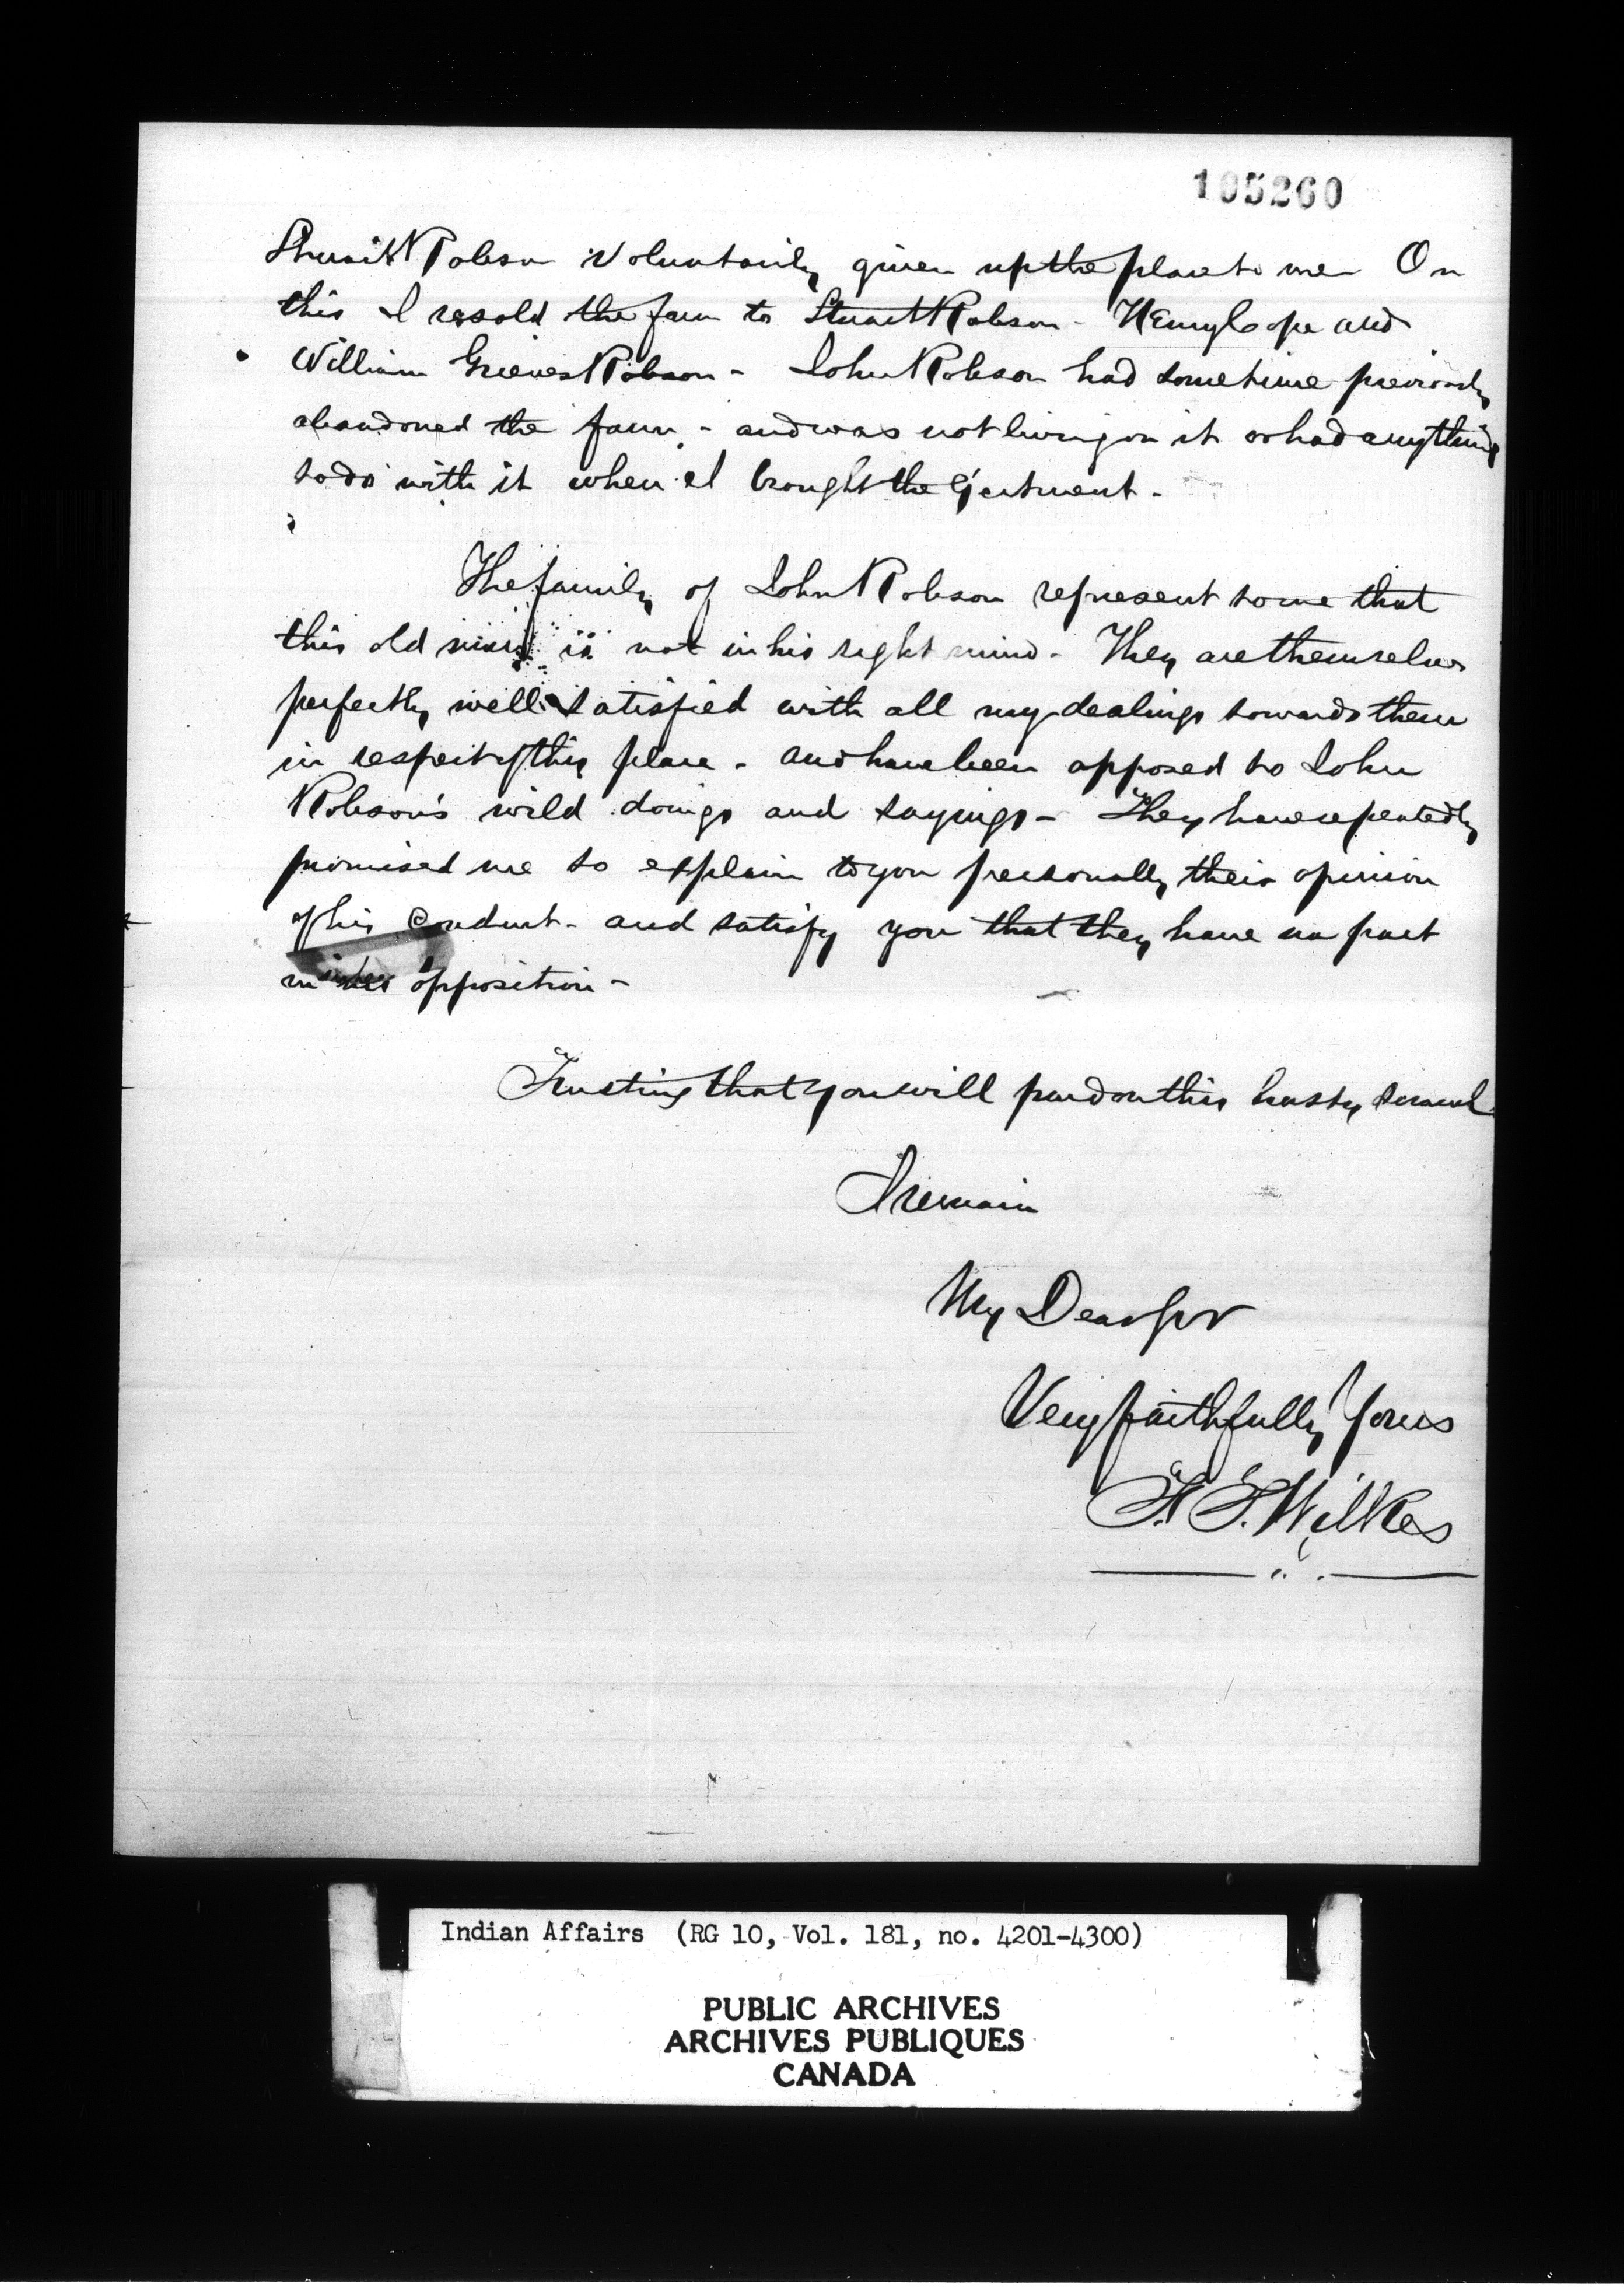 105260
Stuart Robson voluntarily given up the place to me On
this I resold the farm to Stuart Robson - Henry Cope and
William Grieves Robson - John Robson had sometime previously
abandoned the farm, - and was not living on it or had anything
to do with it when I brought the Ejectment -
The family of John Robson represent to me that
this old man is not in his right mind - They are themselves
perfectly well satisfied with all my dealings towards them
in respect of this place - and have been opposed to John
Robson's wild doings and sayings - They have repeatedly
promised me to explain to you personally their opinion
of his conduct - and satisfy you that they have no part
in his opposition -
Trusting that you will pardon this hasty scrawl
I remain
My Dear Sir
Very faithfully Yours
F. T. Wilkes
Indian Affairs (RG 10, Vol. 181, no. 4201-4300)
PUBLIC ARCHIVES
ARCHIVES PUBLIQUES
CANADA